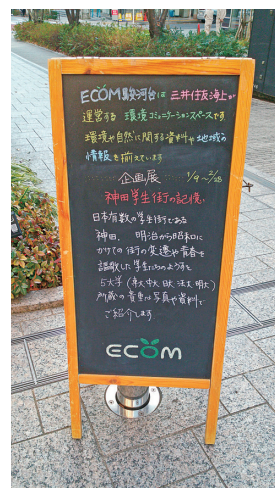 ECOM駿河台は 三井住友海上が
運営する 環境コミュニケーションスペースです
環境や自然に関する資料や地域の
情報を揃えています
企画展 1/9〜2/28
神田学生街の記憶
日本有数の学生街である
神田、明治から昭和に
かけての街の変遷や青春を
謳歌した学生たちのようすを
5大学(専大 中大 日大 法大 明大)
所蔵の貴重な写真や資料で
ご紹介します
ECOM